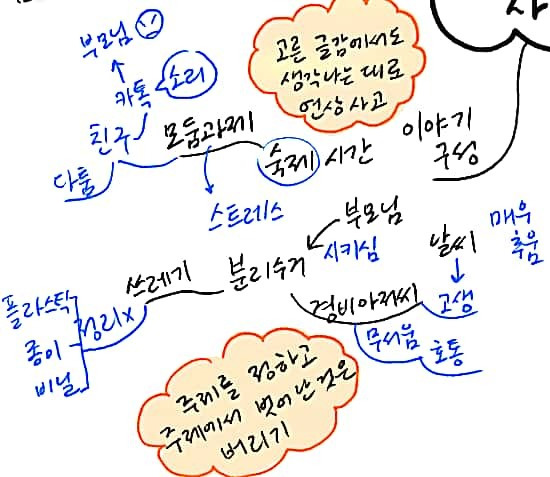 사
고른 글감에서도
생각나는 대로
연상 사고
부모님
카톡
소리
친구
다툼
모둠과제
스트레스
숙제 시간
이야기
구성
부모님
시키심
분리수거
쓰레기
정리x
플라스틱
종이
비닐
경비아저씨
무서움
호통
고생
날씨
매우
추움
주제를 정하고
주제에서 벗어난 것은
버리기